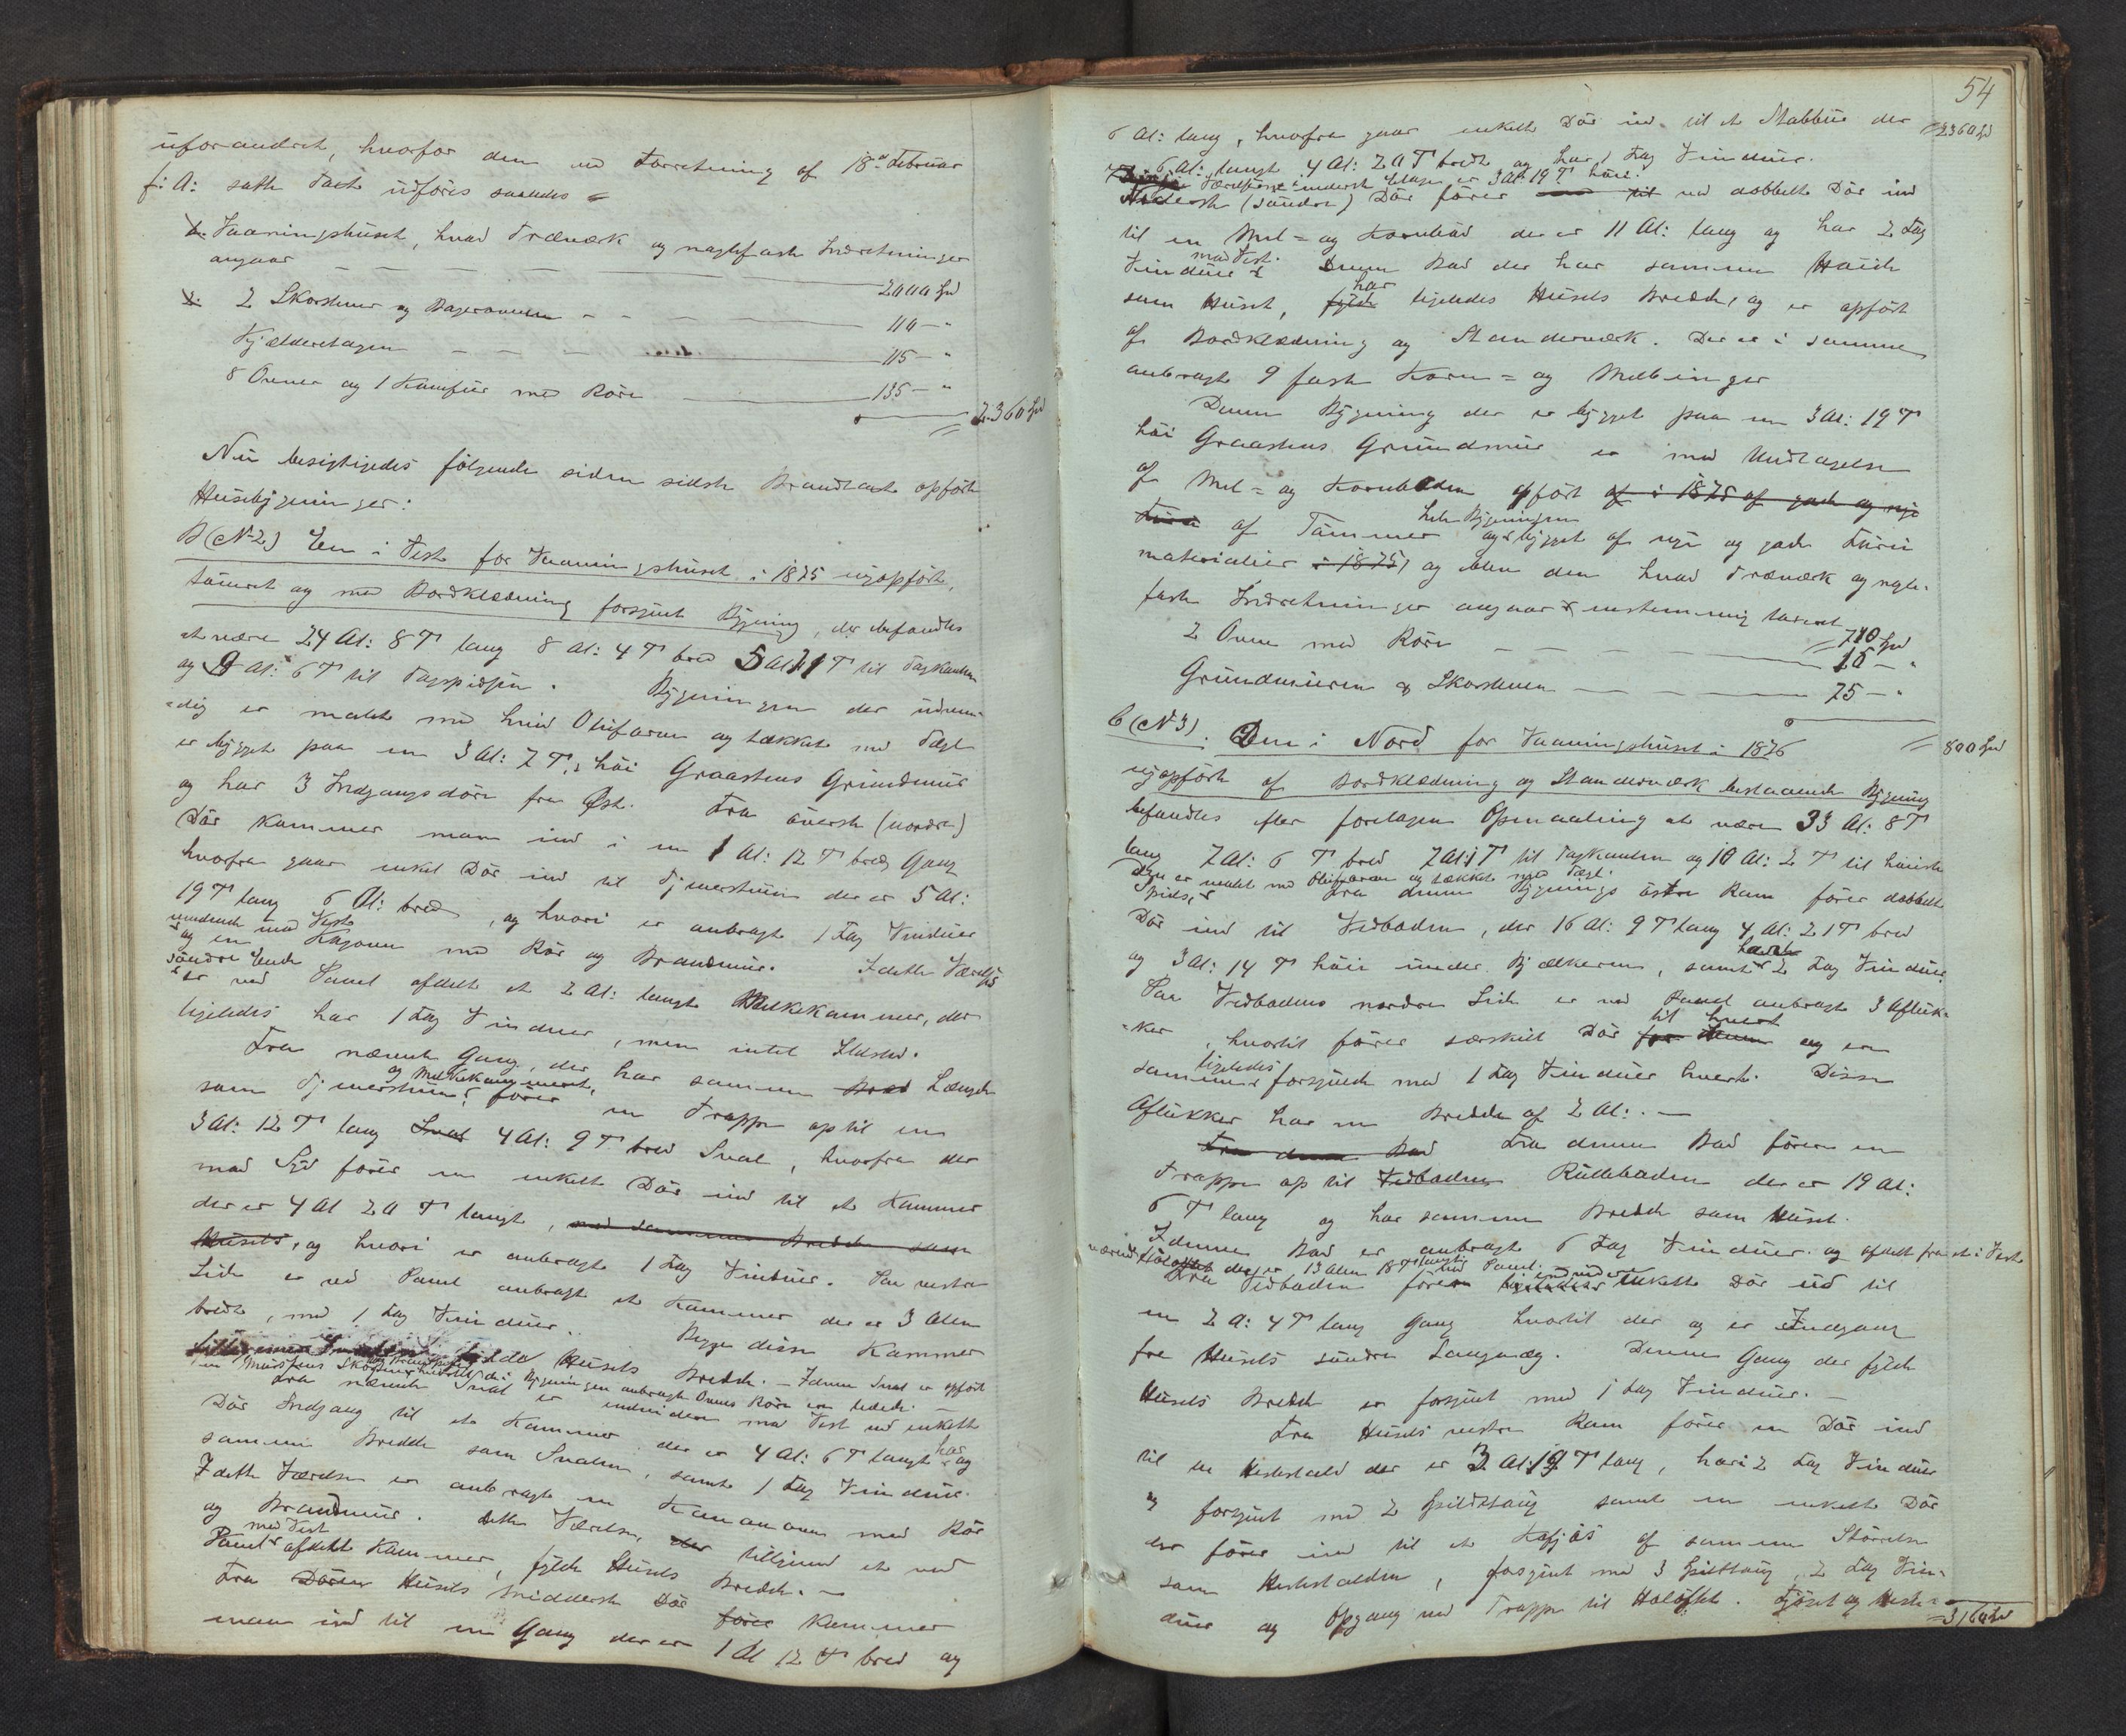 uforandret, hvorfor den ved Forretning af 18de Februar
f: A: satte Taxt udføres saaledes
1. Vaaningshuset, hvad Træværk og naglefaste Indretninger
angaar — — — — 2000 Spd
2. 2 Skorstene og Bagerovnen — — — 110 — "
Kjælderetagen — — — 115 — "
8 Ovne og 1 Komfur med Rör — 135 — "
2360 Spd
Nu besigtigedes følgende siden sidste Brandtaxt opførte
Husebygninger:
B (No 2) En i Vest for Vaaningshuset i 1875 nyopført,
tømret og med Bordklædning forsynt Bygning, der befandtes
at være 24 Al: 8 T lang 8 Al: 4 T bred 5 Al: 11 T til Tagkanten
og 9 Al: 6 T til Tagspidsen. Bygningen der udven-
dig er malet med hvid Oliefarve og tækket med Tagl
er bygget paa en 3 Al: 7 T. høi Graastens Grundmur
og har 3 Indgangsdøre fra Øst. Fra øverste (nordre)
Dör kommer man ind i en 1 Al: 12 T bred Gang
hvorfra gaar enkel Dör ind til Tjenerstuen der er 5 Al:
19 T lang 6 Al: bred, og hvori er anbragt 1 Fag Vinduer
vendende mod Vest
og en Kogeovn med Rör og Brandmur. I dette Værelses
søndre Ende
er ved Panel afdelt et 2 Al: langt Melkekammer, der
ligeledes har 1 Fag Vinduer, men intet Ildsted.
Fra nævnte Gang, der har samme Bred Længde
og Melkekammeret,
som Tjenerstuen, fører en Trappe op til en
3 Al: 12 T lang Sval 4 Al: 9 T bred Sval, hvorfra der
mod Syd fører en enkelt Dör ind til et Kammer
der er 4 Al 20 T langt, med samme Bredde som
Husets, og hvori er anbragt 1 Fag Vinduer. Paa vestre
Side er ved Panel anbragt et Kammer der er 3 Alen
bredt, med 1 Fag Vinduer. Begge disse Kammer
fylde Husets Bredde. — I denne Sval er opført
en Murstens Skorsten hvortil de i Bygningen anbragte Ovnes Rör er ledede. —
Fra nævnte Sval er endvidere mod Vest ved enkelt
Dör Indgang til et Kammer der er 4 Al: 6 T langt har og
samme Bredde som Svalen, samt 1 Fag Vinduer.
I dette Værelse er anbragt en Kanonovn med Rör
og Brandmur. Dette Værelse, der tilligemed et ved
mod Vest
Panel afdelt Kammer, fylder Husets Bredde. —
Fra Dören Husets midderste Dör förer kommer
man ind til en Gang der er 1 Al 12 T bred og
54
6 Al: lang, hvorfra gaar enkelt Dör ind til et Stabbur der
2360 Spd
er 6 Al: langt 4 Al: 20 T bredt og har 1 Fag Vinduer.
Værelserne i underste Etage er 3 Al: 19 T høie.
Nederste (søndre) Dör fører til ved dobbelt Dör ind
til en Mel= og Kornbod der er 11 Al: lang og har 2 Fag
mod Vest.
Vinduer Denne Bod der har samme Høide
har
som Huset, fylder ligeledes Husets Bredde, og er opført
af Bordklædning og Standerværk. Der er i samme
anbragt 9 faste Korn= og Melbinger
Denne Bygning der er bygget paa en 3 Al: 19 T
høi Graastens Grundmur er med Undtagelse
af Mel= og Kornboden opført af i 1875 af gode og nye
hele Bygningen
Furu af Tömmer og bygget af nye og gode Furu
materialier i 1875, og blev den hvad Træværk og nagle-
faste Indretninger angaar enstemmig taxeret
710 Spd
2 Ovne med Rör — — — 15 — "
Grundmuren og Skorstenen — — — 75 — "
800 Spd
C (No 3). Den i Nord for Vaaningshuset i 1876
nyopførte af Bordklædning og Standerværk bestaaende Bygning
befandtes efter foretagen Opmaaling at være 33 Al: 8 T
lang 7 Al: 6 T bred 7 Al: 1 T til Tagkanten og 10 Al: 2 T til høieste
Den er malet med Oliefarve og tækket med Tagl.
Spids, Fra denne Bygnings østre Ram fører dobbelt
Dör ind til Vedboden, der 16 Al: 9 T lang 4 Al: 21 T bred
og 3 Al: 14 T høi under Bjælkerne, samt 2 Fag Vinduer
Paa Vedbodens nordre Side er ved Panel anbragt 3 Afluk-
til hvert
ker, hvortil fører særskilt Dör for denne og er
ligeledes
samme forsynede med 1 Fag Vinduer hvert. Disse
Aflukker har en Bredde af 2 Al: —
Fra denne Bod Fra denne Bod fører en
Trappe op til Vedboden Rulleboden der er 19 Al:
6 T lang og har samme Bredde som Huset.
I denne Bod er anbragt 6 Fag Vinduer og afdelt fra et i Vest
værende Höloft der er 13 Alen 18 T langt ved Panel.
Fra Vedboden fører ligeledes endvidere enkelt Dör ud til
en 2 A: 4 T lang Gang hvortil der og er Indgang
fra Husets søndre Langvæg. Denne Gang der fylder
Husets Bredde er forsynt med 1 Fag Vinduer. —
Fra Husets vestre Ram fører en Dör ind
til en Hestestald der er 3 Al: 19 T lang, har 2 Fag Vinduer
og forsynt med 2 Spildtaug samt en enkelt Dör
der fører ind til et Kofjös af samme Størrelse
som Hestestalden, forsynt med 3 Spiltaug, 2 Fag Vin-
duer og Opgang ved Trappe til Höloftet. Fjöset og Heste-
3160 Spd